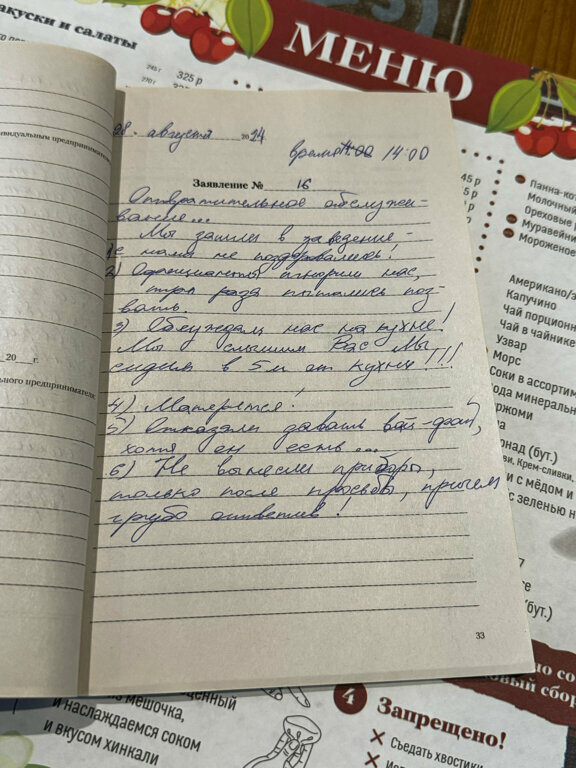 акуски и салаты
245 г 325 р
270 г
МЕНЮ
ивидуальным предпринимателе
28. августа 2024
время 14:00
Заявление № 16
Отвратительное обслужи-
вание...
Мы зашли в заведение -
с нами не поздоровались!
2) Официанты игнорили нас,
три раза пытались поз-
вать.
3) Обсуждали нас на кухне!
Мы слышим Вас Мы
сидим в 5 м от кухни!!!
4) Матерятся!
5) Отказали давать вай-фай,
хотя он есть....
6) Не вынесли приборы,
только после просьбы, причем
грубо ответив!
33
20 г.
ного предпринимателя
45 р
Панна-ко
Молочный
Ореховые р
Муравейни
Мороженое
Американо/э
Капучино
Чай порционн
Чай в чайнике
Узвар
Морс
Соки в ассортим
ода минеральн
ржоми
на
онад (бут.)
ви, Крем-сливки,
и с мёдом и
с зеленью н
7
се
(бут.)
мешочка,
и наслаждаемся соком
и вкусом хинкали
4 Запрещено!
Съедать хвостики